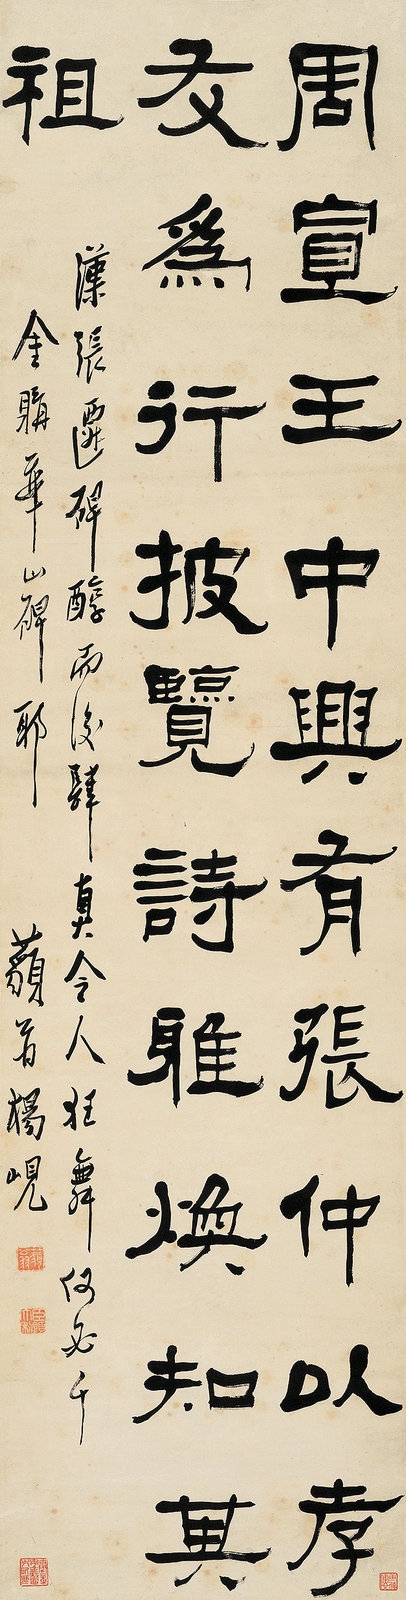 周宣王中興有張仲以孝
友為行披覽詩雅煥知其
祖
漢張遷碑醇而後肆真令人狂舞何必千
金購華山碑耶
藐翁楊峴